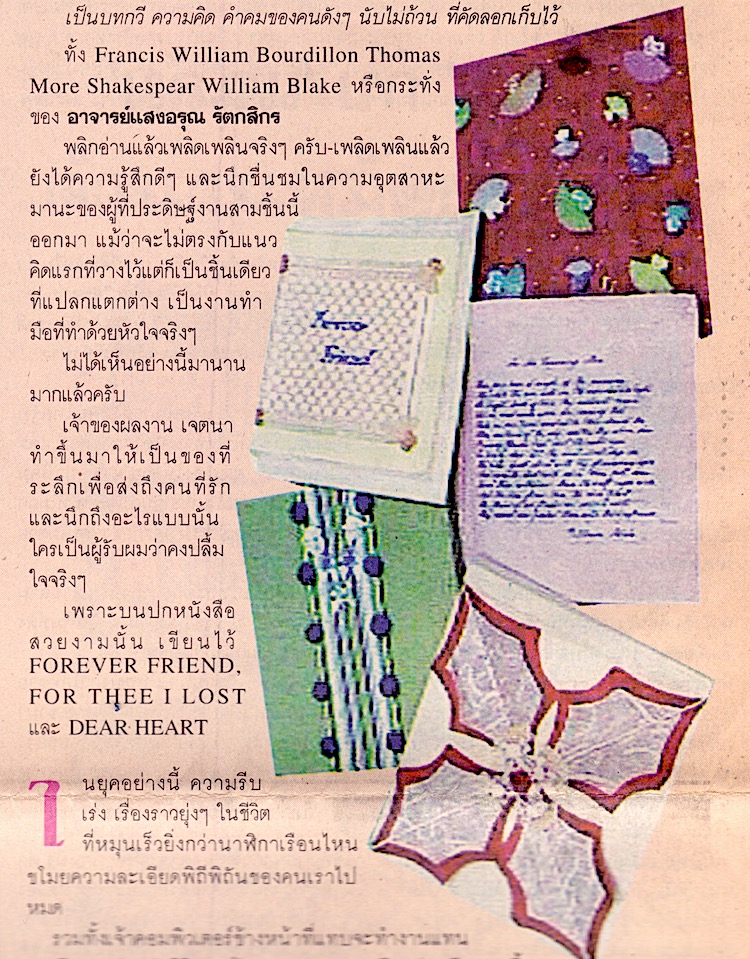 เป็นบทกวี ความคิด คำคมของคนดังๆ นับไม่ถ้วน ที่คัดลอกเก็บไว้
ทั้ง Francis William Bourdillon Thomas
More Shakespear William Blake หรือกระทั่ง
ของ อาจารย์แสงอรุณ รัตกสิกร
พลิกอ่านแล้วเพลิดเพลินจริงๆ ครับ-เพลิดเพลินแล้ว
ยังได้ความรู้สึกดีๆ และนึกชื่นชมในความอุตสาหะ
มานะของผู้ที่ประดิษฐ์งานสามชิ้นนี้
ออกมา แม้ว่าจะไม่ตรงกับแนว
คิดแรกที่วางไว้แต่ก็เป็นชิ้นเดียว
ที่แปลกแตกต่าง เป็นงานทำ
มือที่ทำด้วยหัวใจจริงๆ
ไม่ได้เห็นอย่างนี้มานาน
มากแล้วครับ
เจ้าของผลงาน เจตนา
ทำขึ้นมาให้เป็นของที่
ระลึกเพื่อส่งถึงคนที่รัก
และนึกถึงอะไรแบบนั้น
ใครเป็นผู้รับผมว่าคงปลื้ม
ใจจริงๆ
เพราะบนปกหนังสือ
สวยงามนั้น เขียนไว้
FOREVER FRIEND,
FOR THEE I LOST
และ DEAR HEART
ในยุคอย่างนี้ ความรีบ
เร่ง เรื่องราวยุ่งๆ ในชีวิต
ที่หมุนเร็วยิ่งกว่านาฬิกาเรือนไหน
ขโมยความละเอียดพิถีพิถันของคนเราไป
หมด
รวมทั้งเจ้าคอมพิวเตอร์ข้างหน้าที่แทบจะทำงานแทน